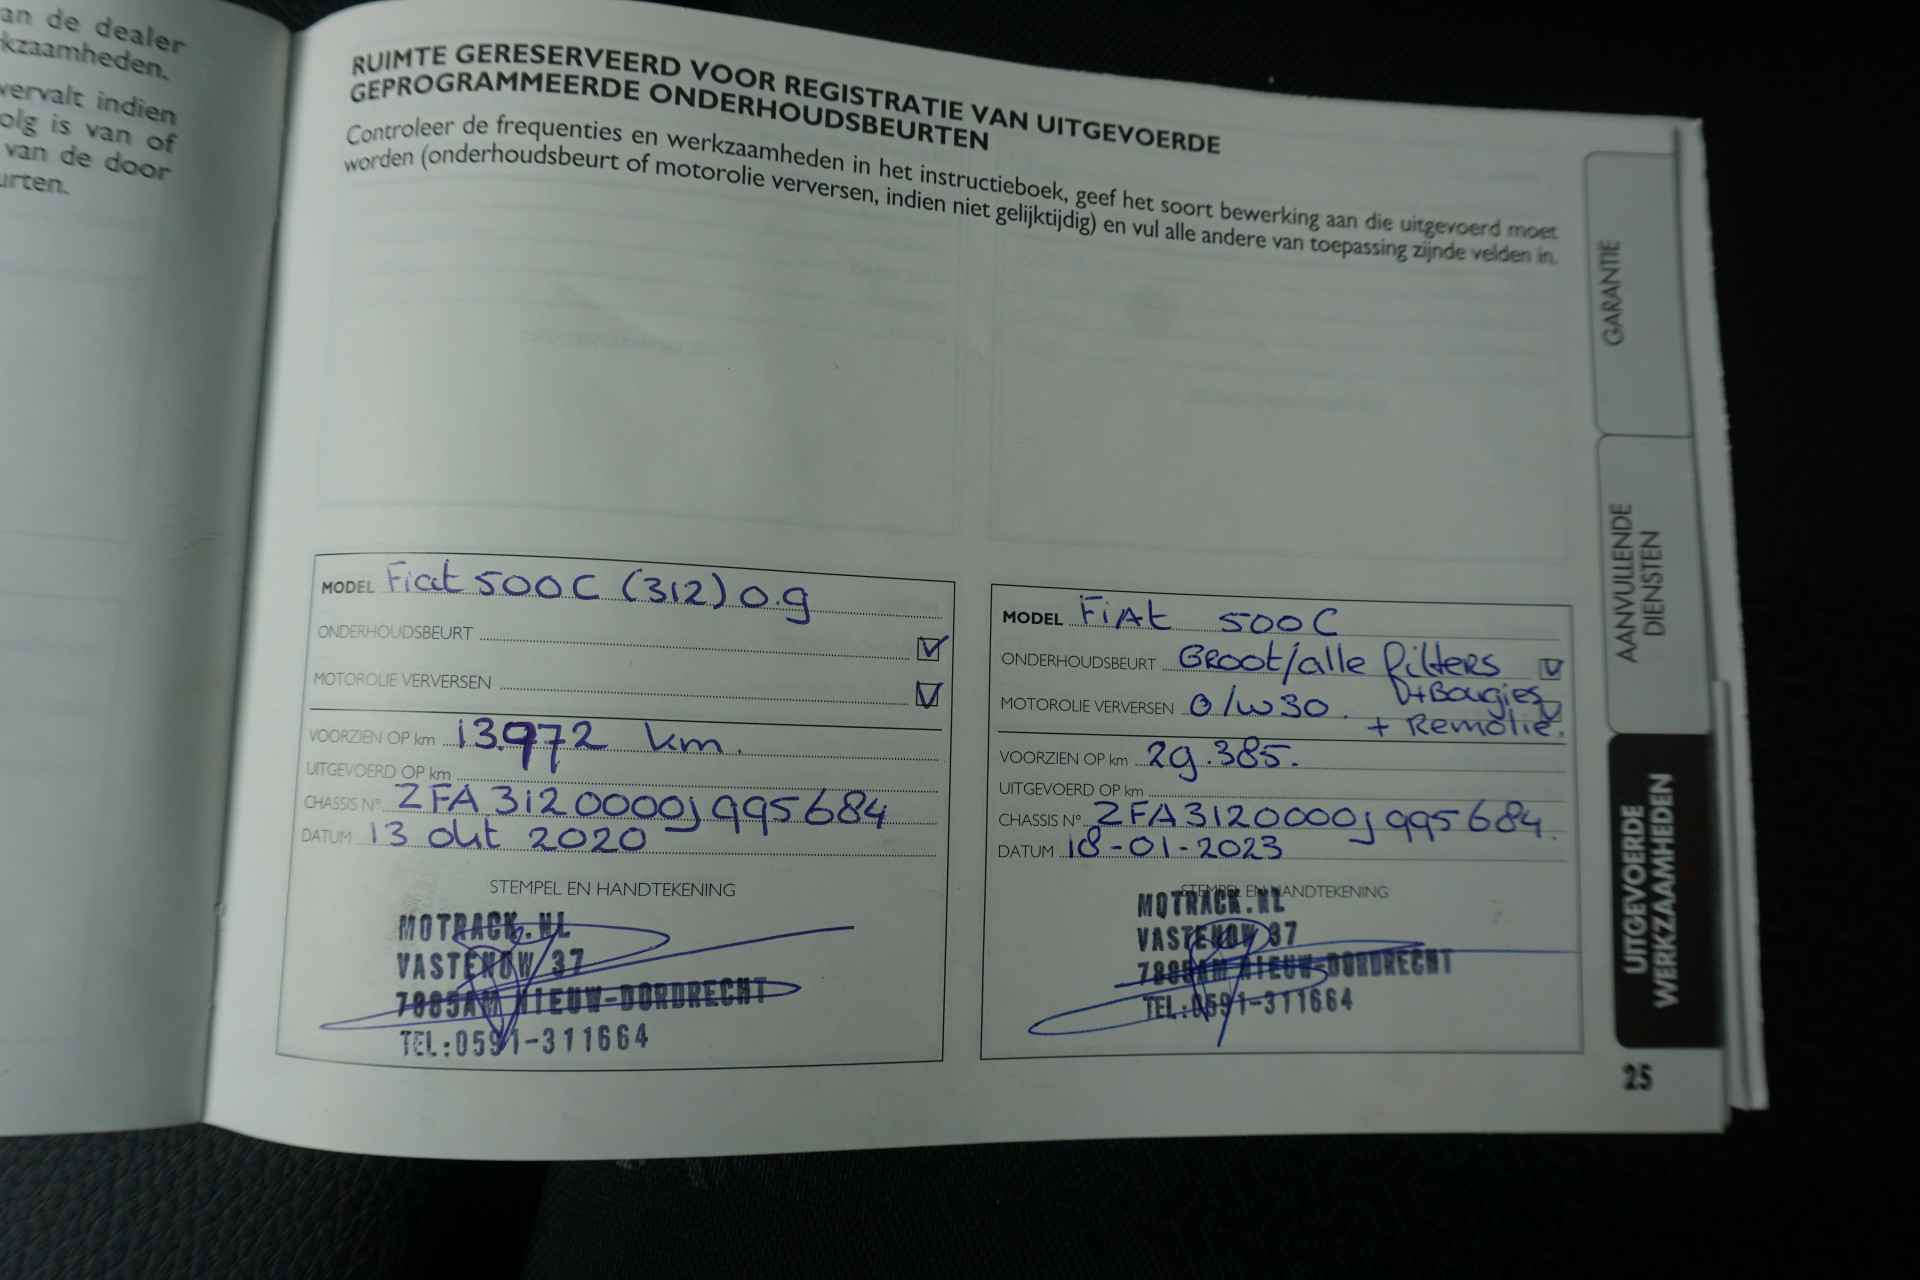 an de dealer
kzaamheden.
vervalt indien
olg is van of
van de door
urten.
RUIMTE GERESERVEERD VOOR REGISTRATIE VAN UITGEVOERDE
GEPROGRAMMEERDE ONDERHOUDSBEURTEN
Controleer de frequenties en werkzaamheden in het instructieboek, geef het soort bewerking aan die uitgevoerd moet
worden (onderhoudsbeurt of motorolie verversen, indien niet gelijktijdig) en vul alle andere van toepassing zijnde velden in.
MODEL Fiat 500C (312) 0.9
ONDERHOUDSBEURT
MOTOROLIE VERVERSEN
VOORZIEN OP km 13.972 km.
UITGEVOERD OP km
CHASSIS N° ZFA3120000J995684
DATUM 13 okt 2020
STEMPEL EN HANDTEKENING
MOTRACK.NL
VASTENOW 37
7885AM NIEUW-DORDRECHT
TEL:0591-311664
MODEL FiAt 500C
ONDERHOUDSBEURT GRoot/alle filters
+Bougies
MOTOROLIE VERVERSEN 0/w30.
+ Remolie.
VOORZIEN OP km 29.385.
UITGEVOERD OP km
CHASSIS N° ZFA3120000J995684.
DATUM 18-01-2023
STEMPEL EN HANDTEKENING
MOTRACK.NL
VASTENOW 37
7885AM NIEUW-DORDRECHT
TEL:0591-311664
GARANTIE
AANVULLENDE
DIENSTEN
UITGEVOERDE
WERKZAAMHEDEN
25